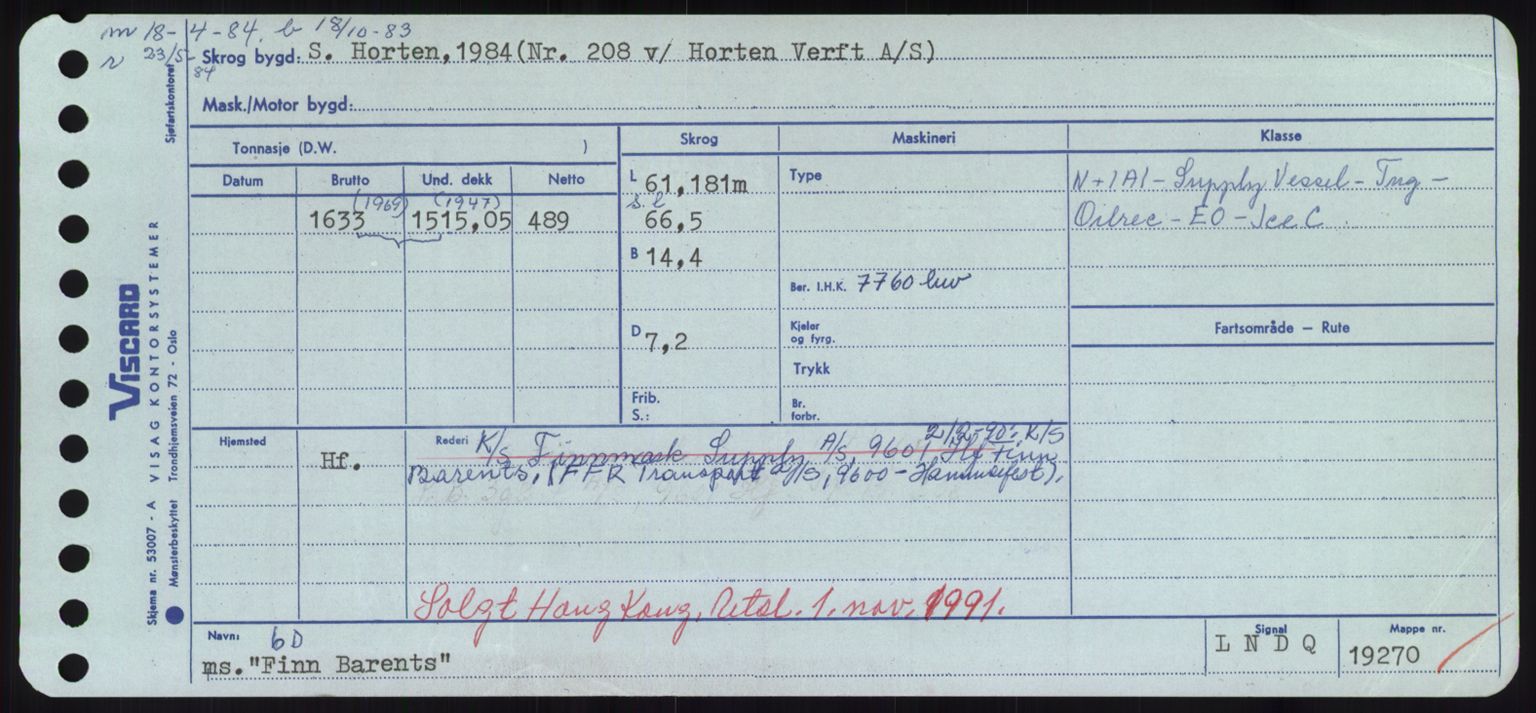 m 18-4-84. b 18/10-83
n 23/5-84
Skrog bygd: S. Horten, 1984 (Nr. 208 v/ Horten Verft A/S)
Mask./Motor bygd:
Tonnasje (D.W. )
Skrog
Maskineri
Klasse
Datum
Brutto
Und. dekk
Netto
(1969) (1947)
1633 1515,05 489
L 61,181m
s.l
66,5
B 14,4
D 7,2
Frib.
S.:
Type
Ber. I.H.K. 7760 bhv
Kjeler
og fyrg.
Trykk
Br.
forbr.
N+1A1 - Supply Vessel - Tug -
Oilrec - EO - Ice C.
Fartsområde — Rute
Hjemsted
Hf.
Rederi K/S Finnmark Supply A/S, 9601 Hf 2/2-90: K/S Finn
Barents, (FFR Transport A/S, 9600 - Hammerfest).
Solgt Hong Kong, 1. nov. 1991.
Navn: bD
ms. "Finn Barents"
Signal
L N D Q
Mappe nr.
19270
VISCARD
VISAG KONTORSYSTEMER
Sjøfartskontoret
Skjema nr. 53007 - A
Mønsterbeskyttet Trondhjemsveien 72 - Oslo